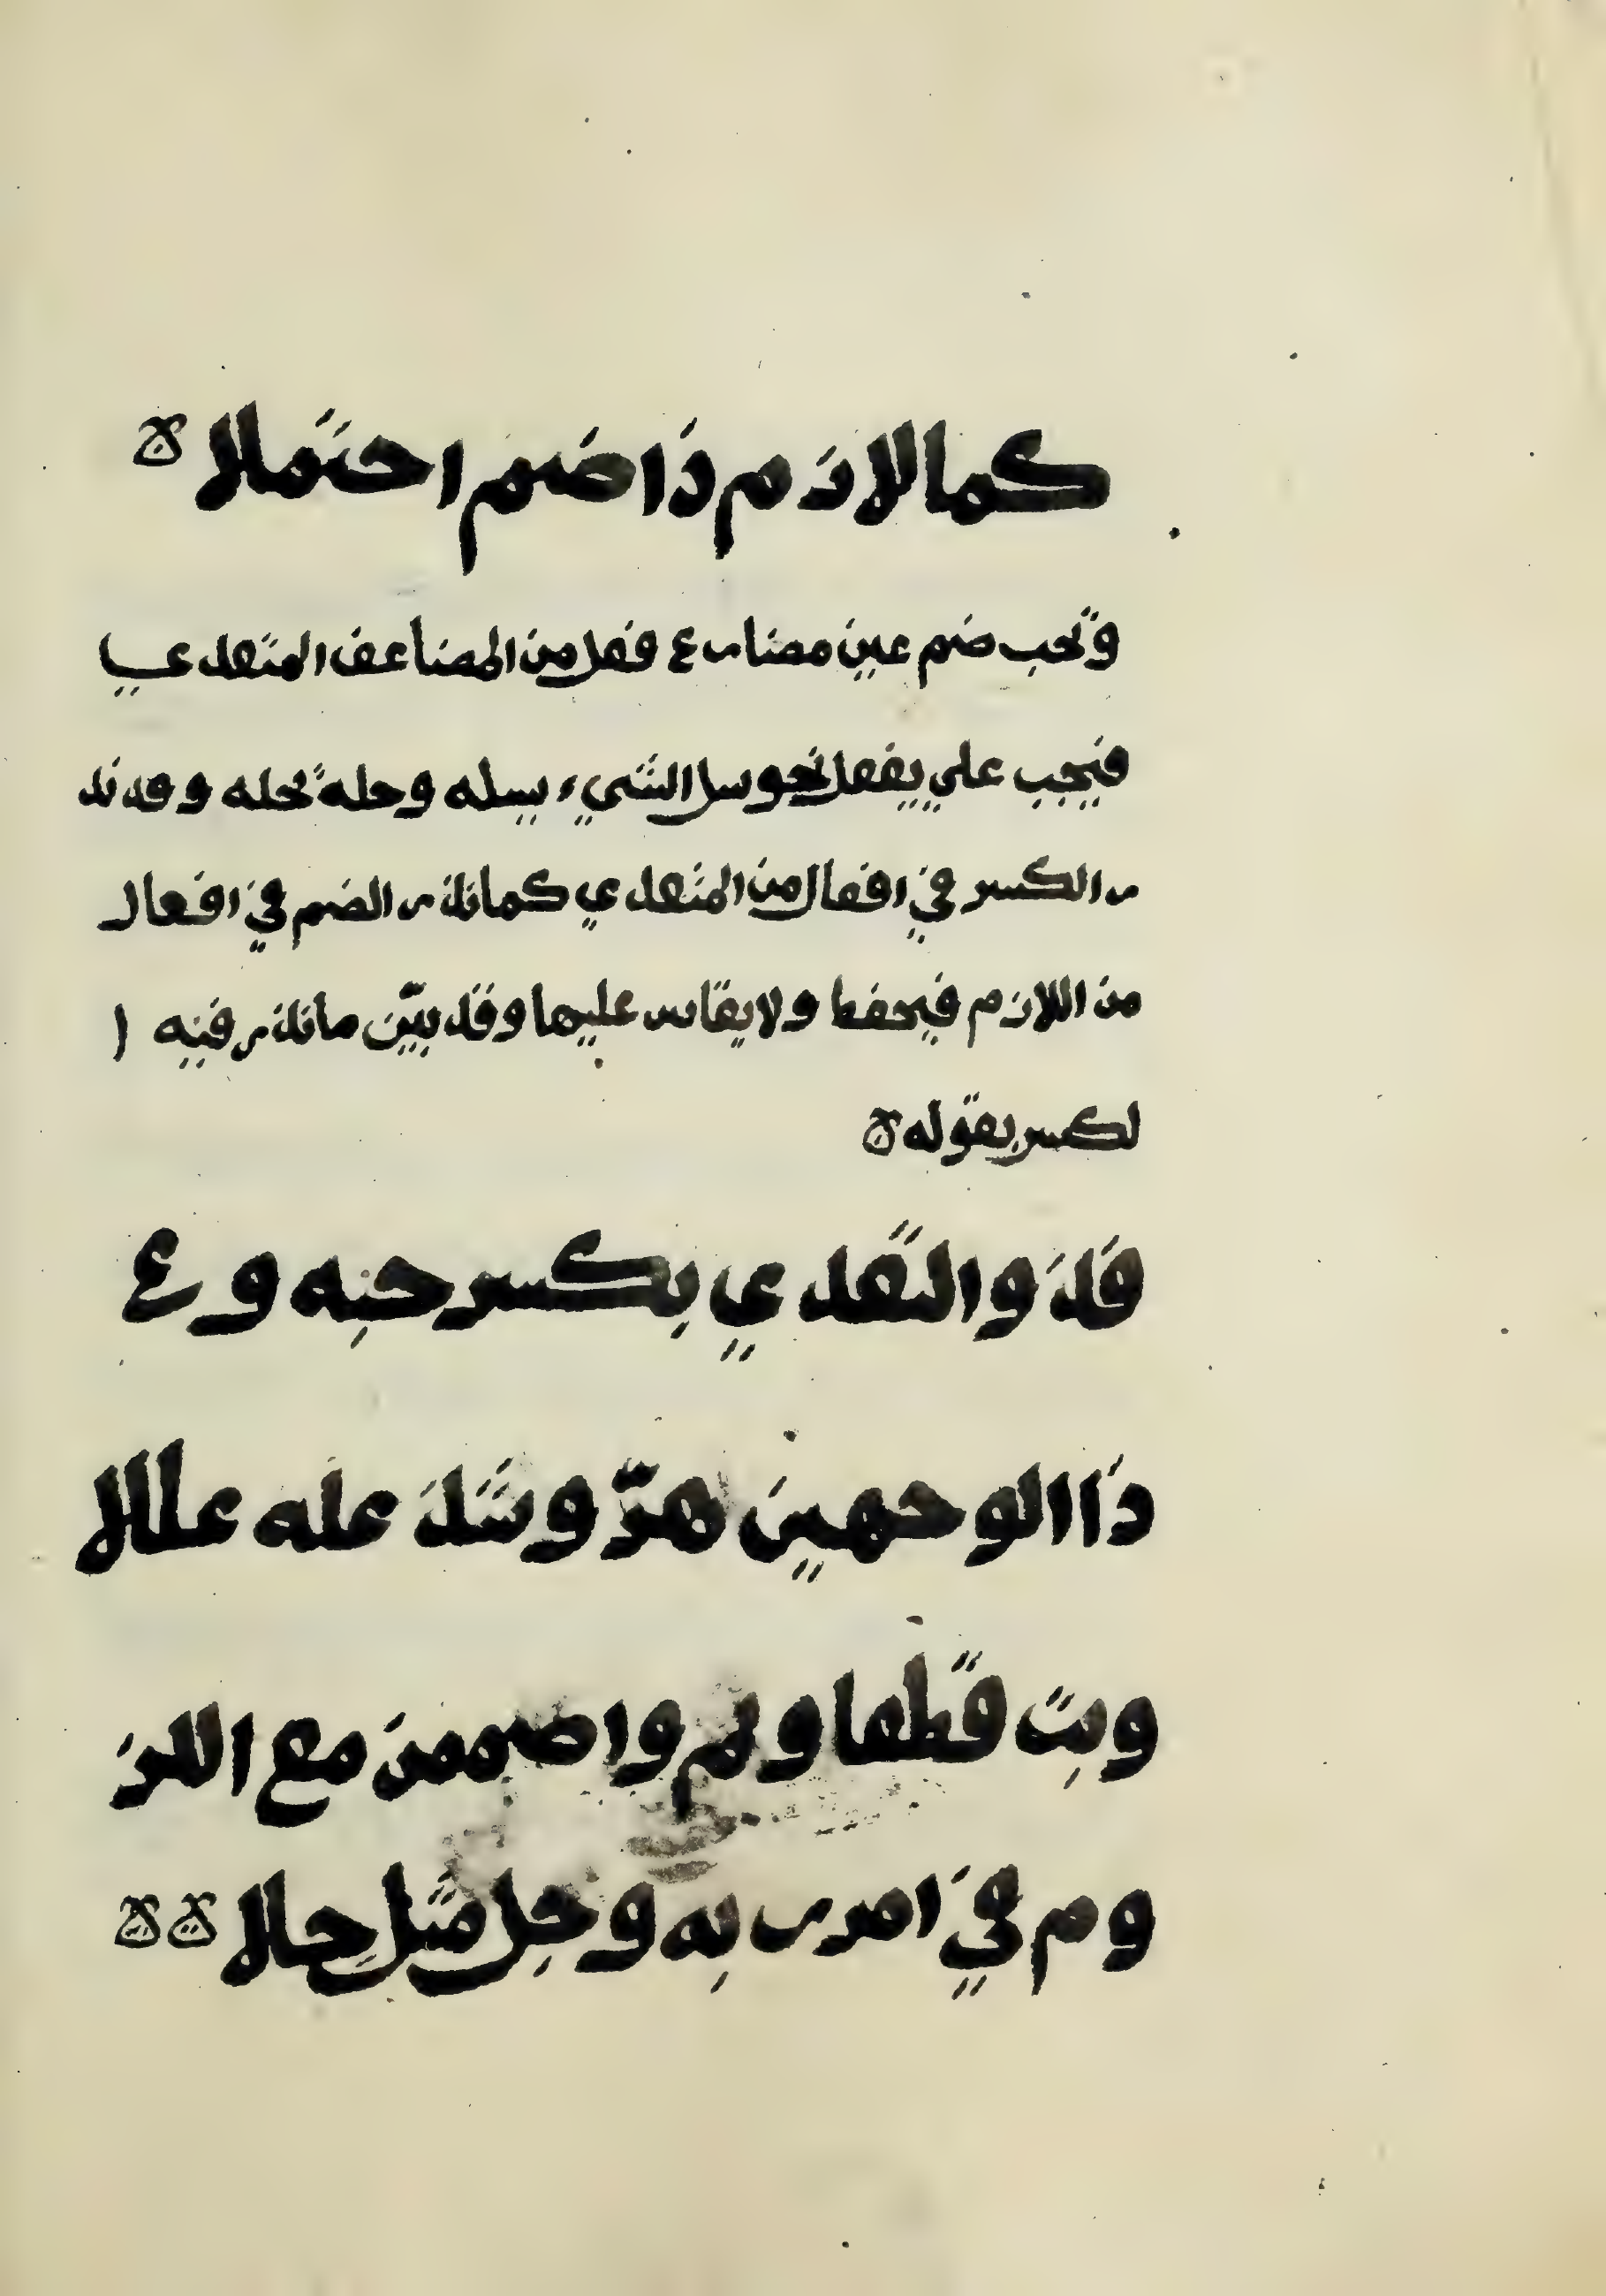 كما لازم ذا ضم احتملا
وتجب ضم عين مضارع فعل من المضاعف المتعدي
فيجب علي يفعل نحو سل الشيء يسله وحله يحله وقد ند
ر الكسر في افعال من المتعدي كما ندر الضم في افعال
من اللازم فيحفظ ولا يقاس عليها وقد بيّن ما ندر فيه ا
لكسر بقوله
فذو التعدي بكسر حبه و ع
ذا الوجهين هرّ وشد عله عللا
وبت قطعا ونم واضممن مع اللز
وم في امرر به وجل مثل جلا